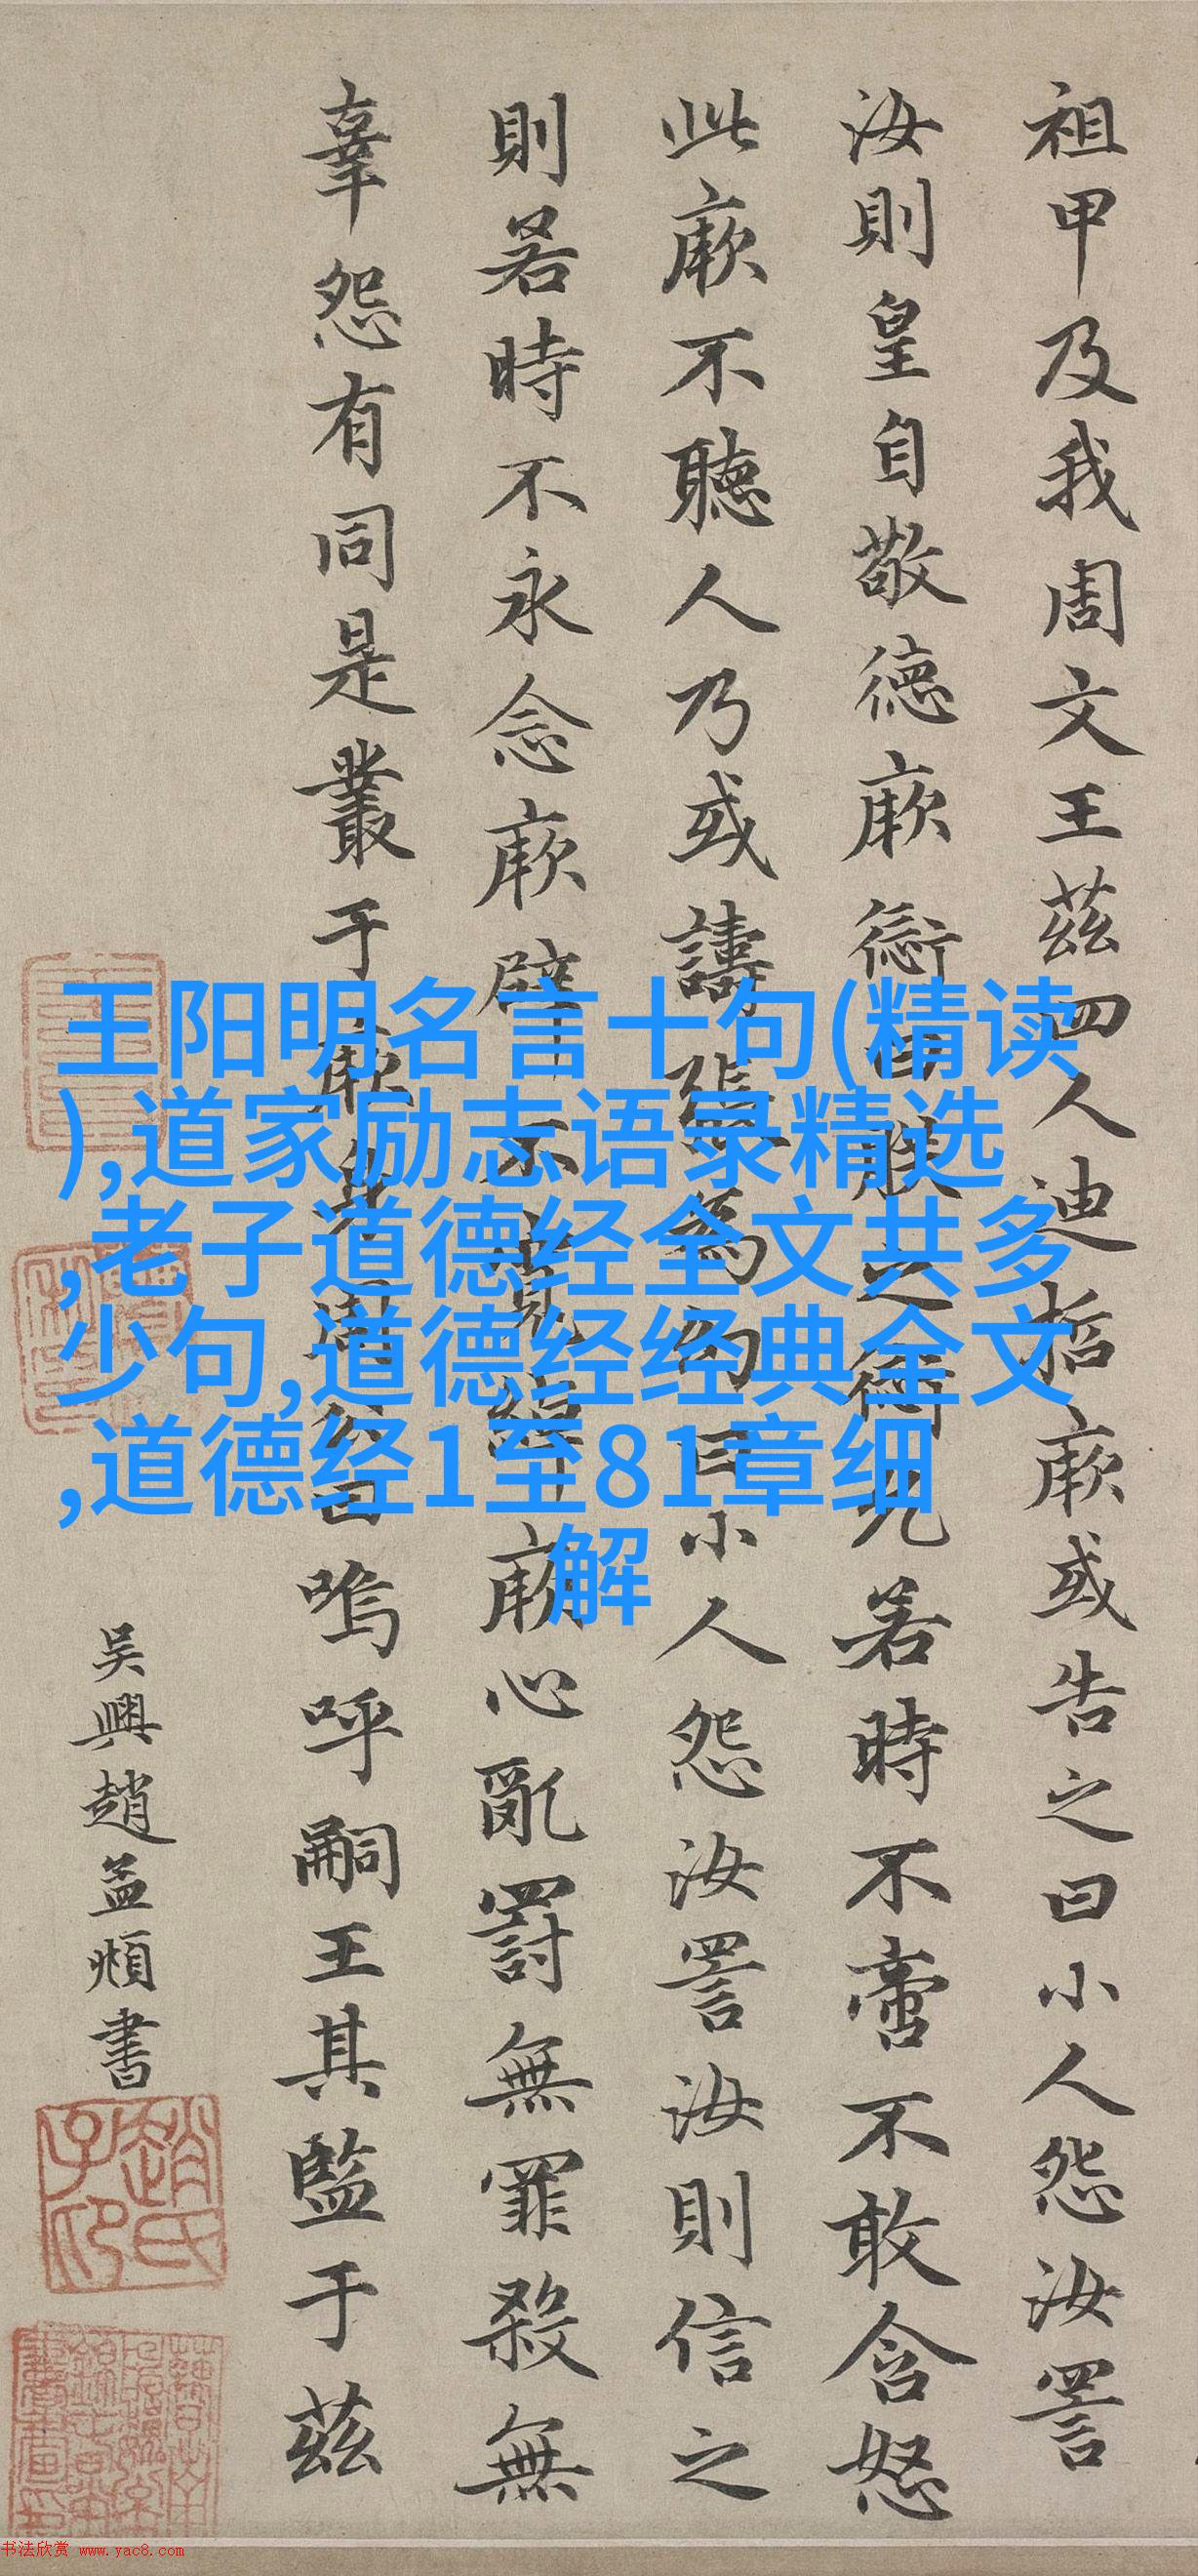 祖甲及我周文王茲四人迪哲厥或告之曰小人怨汝詈
汝則皇自敬德厥愆曰朕之愆允若時不啻不敢含怒
此厥不聽人乃或譸張為幻曰小人怨汝詈汝則信之
則若時不永念厥辟不寬綽厥心亂罰無罪殺無
辜怨有同是叢于厥身周公曰嗚呼嗣王其監于茲
吳興趙孟頫書
趙氏子昂
王阳明名言十句(精读
),道家励志语录精选
,老子道德经全文共多
少句,道德经经典全文
,道德经1至81章细
解
书法欣赏 www.yac8.com